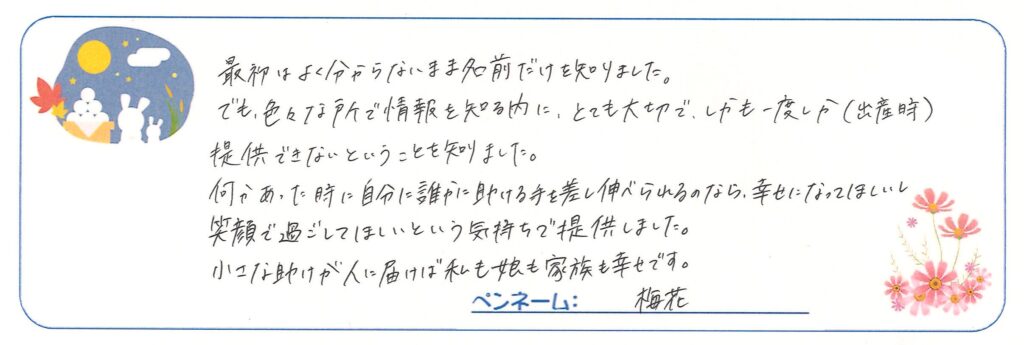 最初はよく分からないまま名前だけを知りました。
でも、色々な所で情報を知る内に、とても大切で、しかも一度しか(出産時)
提供できないということを知りました。
何かあった時に自分に誰かに助ける手を差し伸べられるのなら、幸せになってほしいし
笑顔で過ごしてほしいという気持ちで提供しました。
小さな助けが人に届けば私も娘も家族も幸せです。
ペンネーム： 梅花